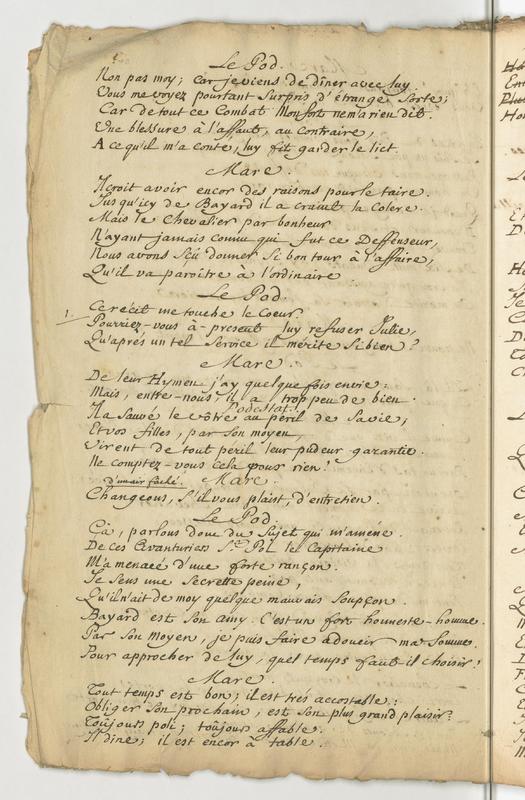 Le Pod.
Non pas moy; car je viens de dîner avec luy
Vous me voyez pourtant surpris d'étrange sorte;
Car de tout ce Combat Monfort ne m'a rien dit.
Une blessure à l'assaut, au contraire,
A ce qu'il m'a conté, luy fit garder le lict.
Mare.
Il croit avoir encor des raisons pour le taire.
Jusqu'icy de Bayard il a craint la Colere.
Mais le Chevalier par bonheur
N'ayant jamais connu qui fut ce Deffenseur,
Nous avons sçû donner si bon tour à l'affaire,
Qu'il va paroître à l'ordinaire.
Le Pod.
1. Ce récit me touche le Coeur.
Pourriez-vous à-present luy refuser Julie,
Qu'aprés un tel Service il mérite si bien?
Mare.
De leur Hymen j'ay quelque fois envie:
Mais, entre-nous, il a trop peu de bien.
Podestat.
Il a sauvé le vôtre au péril de sa vie;
Et vos filles, par son moyen,
Virent de tout peril leur pudeur garantie.
Ne comptez-vous cela pour rien?
d'un air fâché. Mare.
Changeons, s'il vous plaist, d'entretien.
Le Pod.
Cà, parlons donc du sujet qui m'améne.
De ces Avanturiers St. Pol le Capitaine
M'a menacé d'une forte rançon.
Je sens une secrette peine,
Qu'il n'ait de moy quelque mauvais soupçon.
Bayard est son amy. C'est un fort honneste-homme.
Par son moyen, je puis faire adoucir ma somme.
Pour approcher de luy, quel temps faut-il choisir?
Mare.
Tout temps est bon; il est trés accostable:
Obliger son prochain, est son plus grand plaisir:
Toûjours poli; toûjours affable.
Il dîne; il est encor à table.